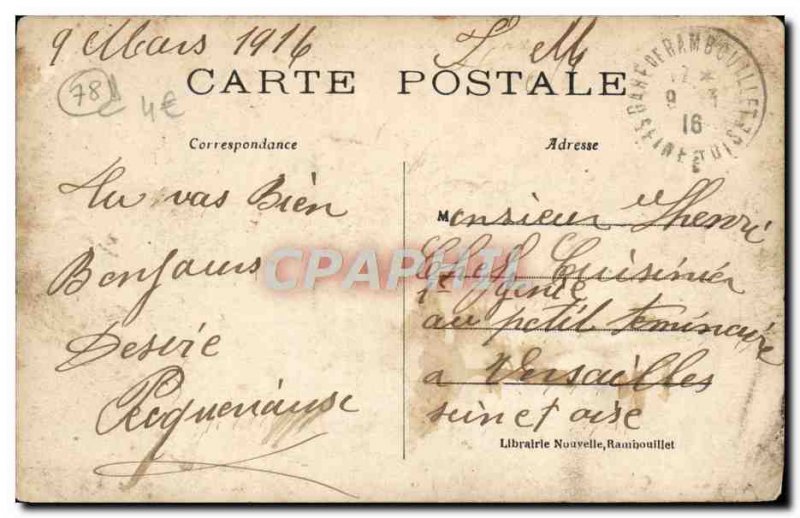 9 Mars 1916
F. M
CARTE POSTALE
GARE DE RAMBOUILLET
9 - 3
16
SEINE ET OISE
78
4€
Correspondance
Adresse
tu vas Bien
Bonjours
Desiré
Monsieur Thenri
Chef Cuisinier
1er Genie
au petit seminaire
a Versailles
seine et oise
CPAPHIL
Librairie Nouvelle, Rambouillet